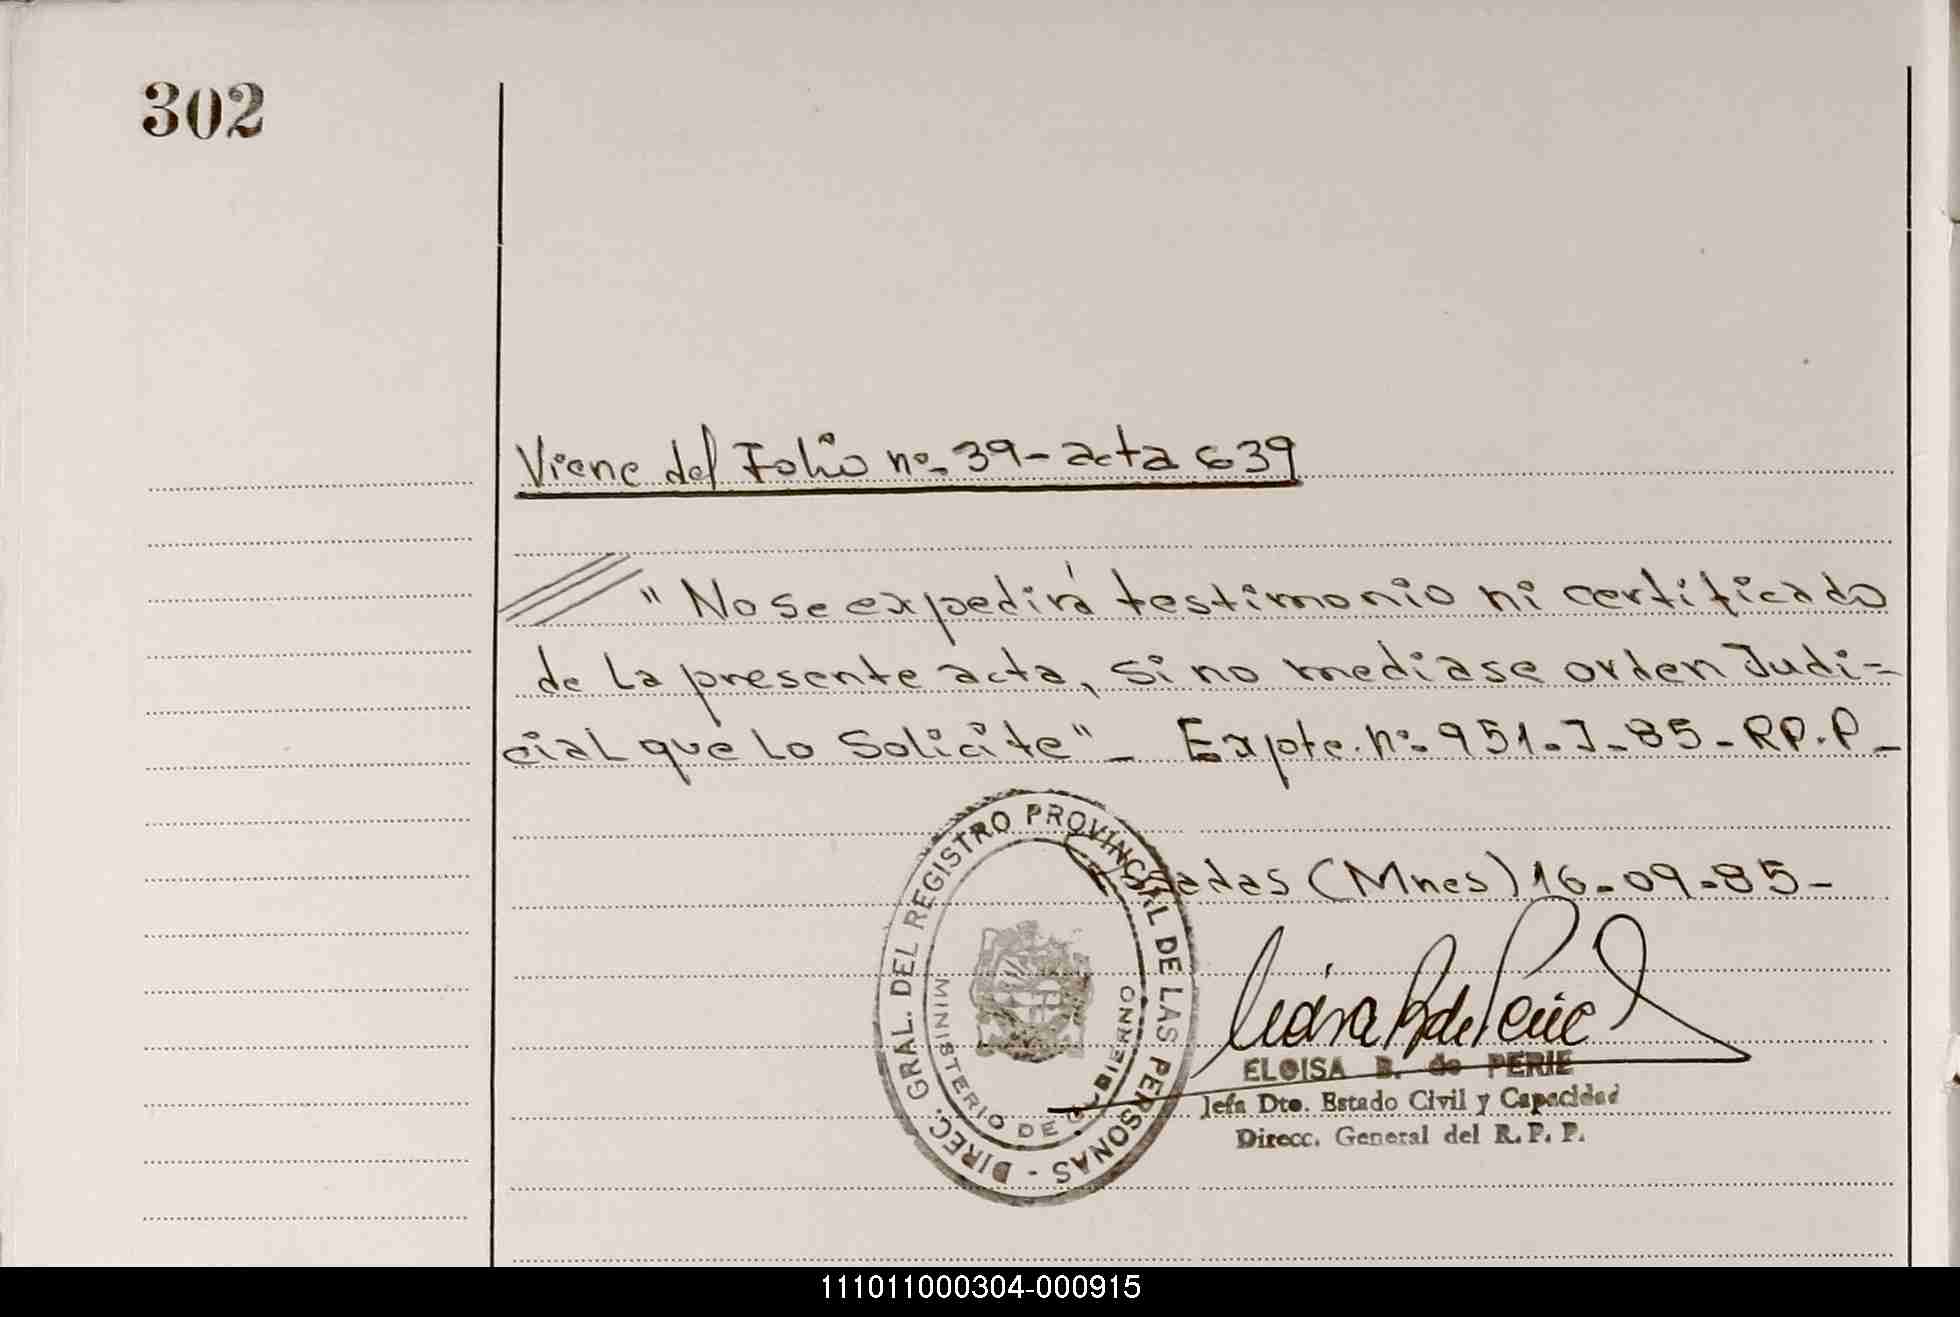 302
Viene del Folio nº 39 - acta 639
"No se expedirá testimonio ni certificado
de La presente acta, si no mediase orden Judi=
cial que Lo Solicite" _ Expte. nº 951-J-85-RP.P_
Posadas (Mnes) 16-09-85-
DIREC. GRAL. DEL REGISTRO PROVINCIAL DE LAS PERSONAS -
MINISTERIO DE GOBIERNO
ELOISA B. de PERIE
Jefa Dto. Estado Civil y Capacidad
Direcc. General del R. P. P.
111011000304-000915